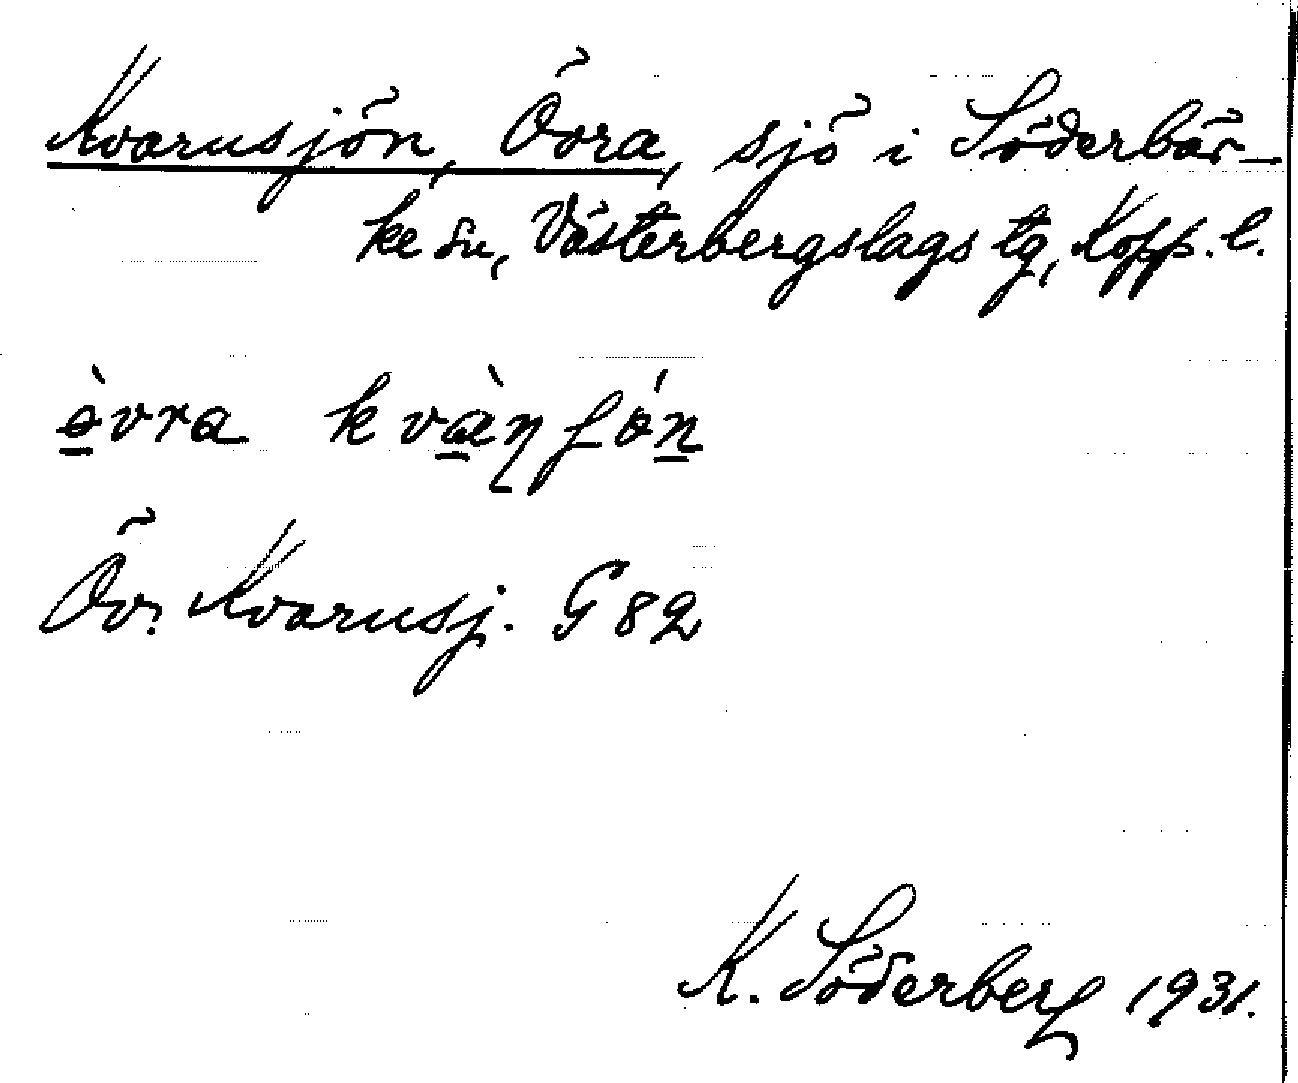 Kvarnsjön, Övra, sjö i Söderbär-
ke sn, Västerbergslags tg, Kopp. l.
èvra kvànʃón
Öv. Kvarnsj. G 82
K. Söderberg 1931.